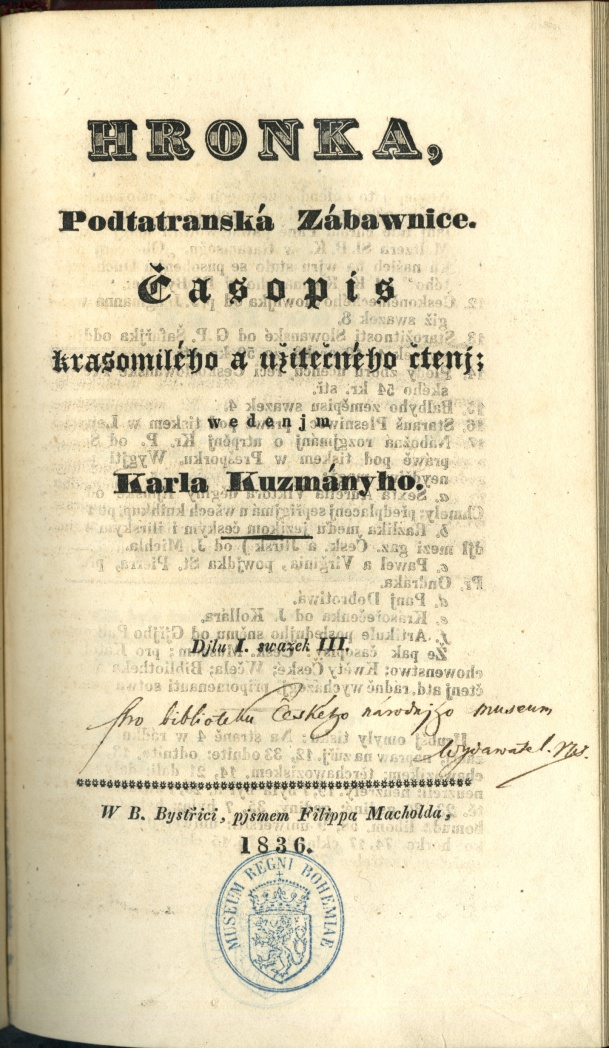 HRONKA,
Podtatranská Zábawnice.
Časopis
krasomilého a užitečného čtenj;
wedenjm
Karla Kuzmányho.
Djlu I. swazek III.
Pro biblioteku Českého národnjho museum
Wydawatel.
W B. Bystřici, pjsmem Filippa Macholda,
1836.
MUSEUM REGNI BOHEMIAE